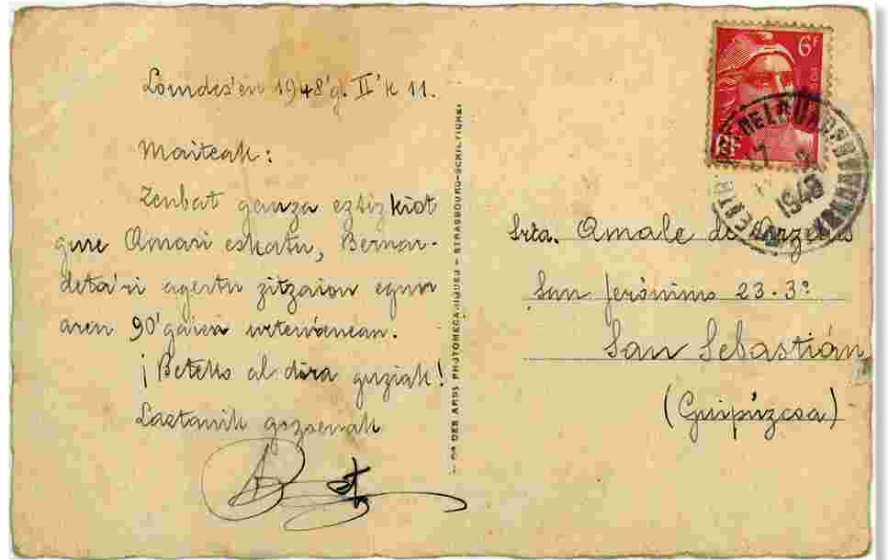 Lourdes'en 1948'g. II'k 11.
Maiteak:
Zenbat gauza eztizkiot
gure Amari eskatu, Bernar-
deta'ri agertu zitzaion egun
aren 90'garen urteurrenean.
¡Beteko al dira guziak!
Laztanik gozoenak
DES ARTS PHOTOMECANIQUES - STRASBOURG-SCHILTIGHEI
6F
1948
Srta. Amale de Arzelus
San Jerónimo 23-3º
San Sebastián
(Guipúzcoa)